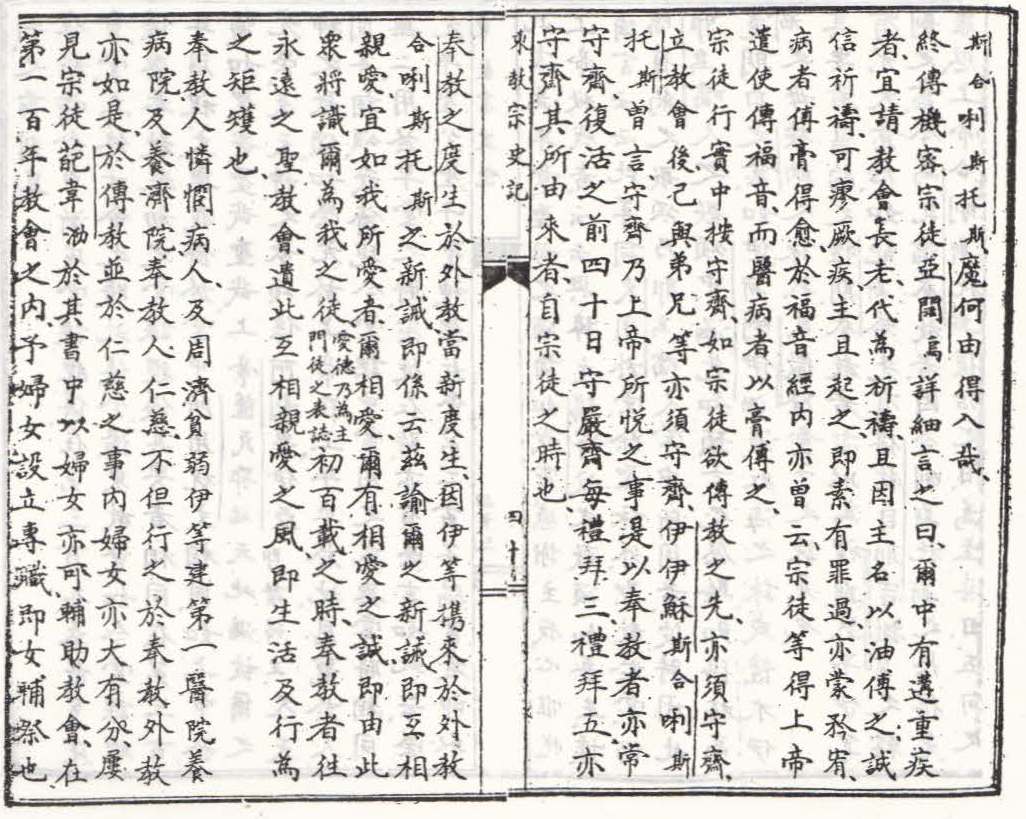 斯合唎斯托斯魔何由得入哉、
終之傳機密宗徒亞闊烏詳細言之曰、爾中有遘重疾
者、宜請教會長老、代為祈禱、且因主名、以油傅之、誠
信祈禱、可瘳厥疾、主且起之、即素有罪過、亦蒙矜宥、
病者傅膏得愈、於福音經內亦曾云、宗徒等得上帝
遣使傳福音、而醫病者以膏傅之、
宗徒行實中按守齋、如宗徒欲傳教之先、亦須守齋、
立教會後、己與弟兄等亦須守齋、伊伊穌斯合唎斯
托斯曾言、守齋乃上帝所悅之事、是以奉教者亦常
守齋、復活之前四十日守嚴齋、每禮拜三、禮拜五亦
守齋、其所由來者、自宗徒之時也、
東教宗史記 四十
奉教之度生、於外教當新度生、因伊等攜來於外教
合唎斯托斯之新誡、即係云、茲諭爾之新誡、即互相
親愛、宜如我所愛者、爾相愛、爾有相愛之誠、即由此
衆將識爾為我之徒、愛德乃為主門徒之表誌初百載之時、奉教者往
永遠之聖教會、遺此互相親愛之風、即生活及行為
之矩矱也、
奉教人憐憫病人、及周濟貧弱、伊等建第一醫院養
病院、及養濟院、奉教人仁慈、不但行之於奉教、外教
亦如是、於傳教並於仁慈之事內、婦女亦大有分、屢
見宗徒葩韋泐於其書中、以婦女亦可輔助教會、在
第一百年教會之內、予婦女設立專職、即女輔祭也、